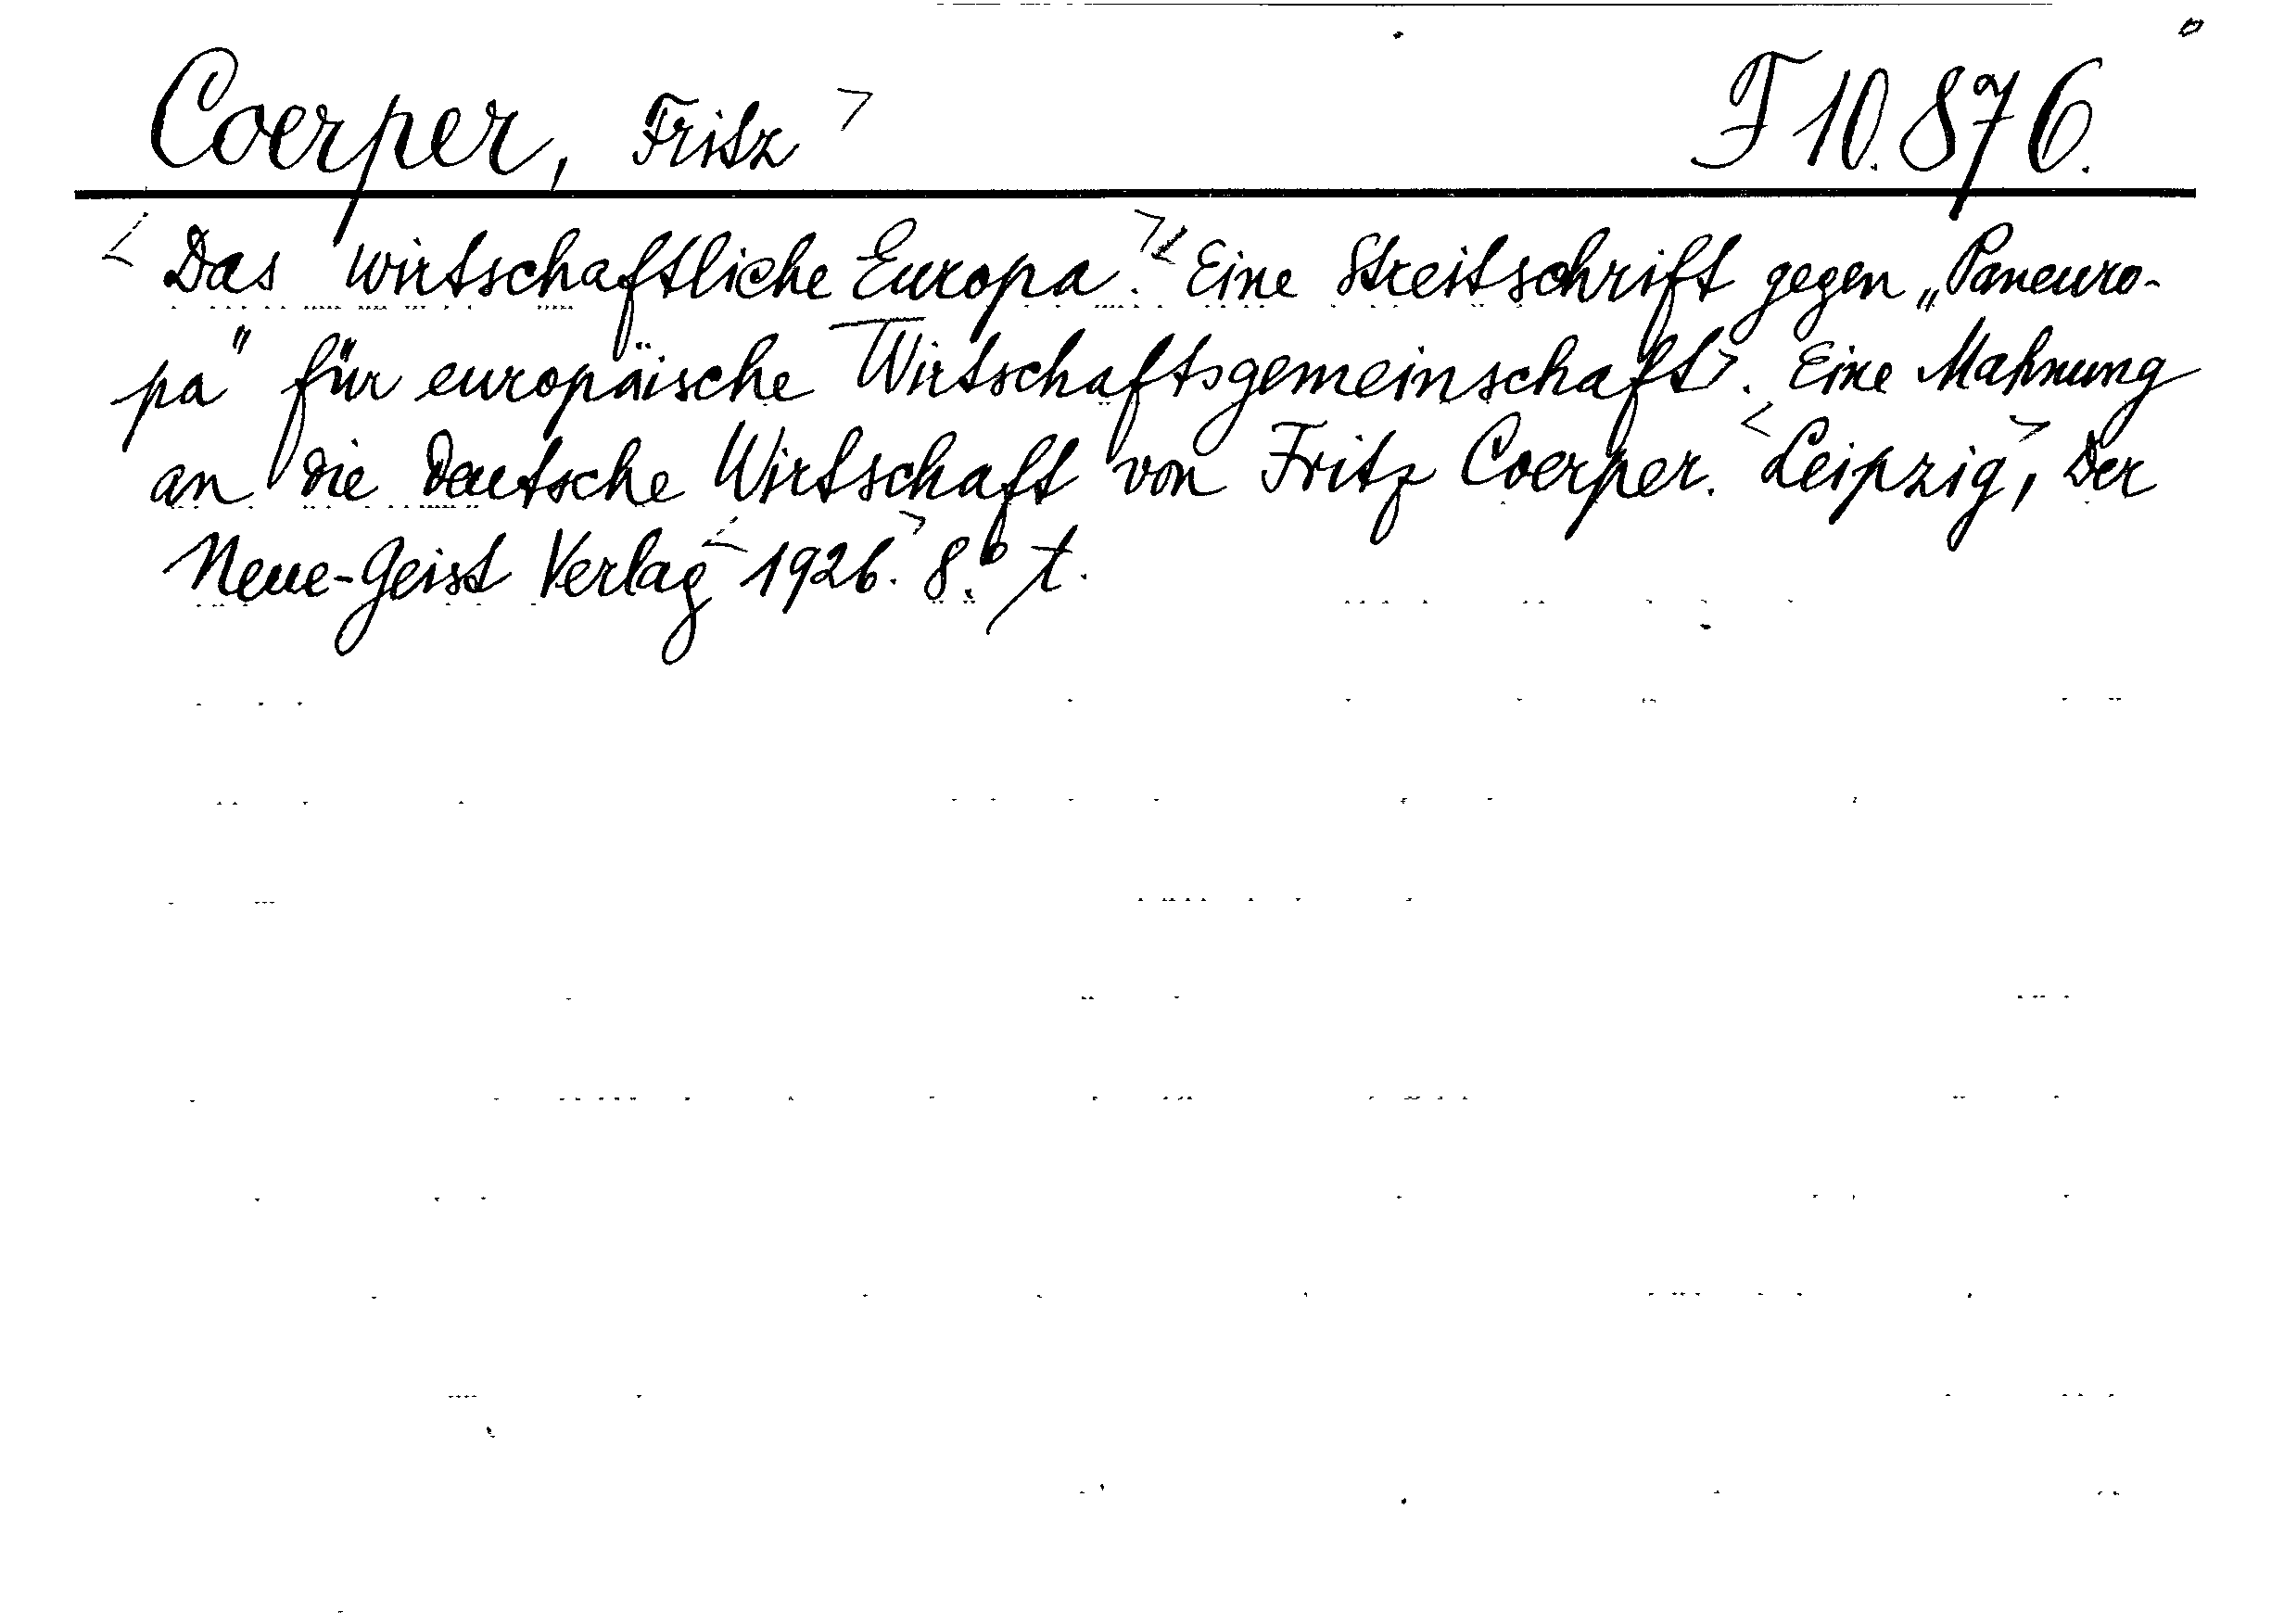 Coerper, Fritz > F 10.876.
< Das wirtschaftliche Europa.> < Eine Streitschrift gegen „Paneuro-
pa" für europäische Wirtschaftsgemeinschaft>. Eine Mahnung
an die Deutsche Wirtschaft von Fritz Coerper. <Leipzig>, Der
Neue-Geist Verlag <1926.> 8.° t.